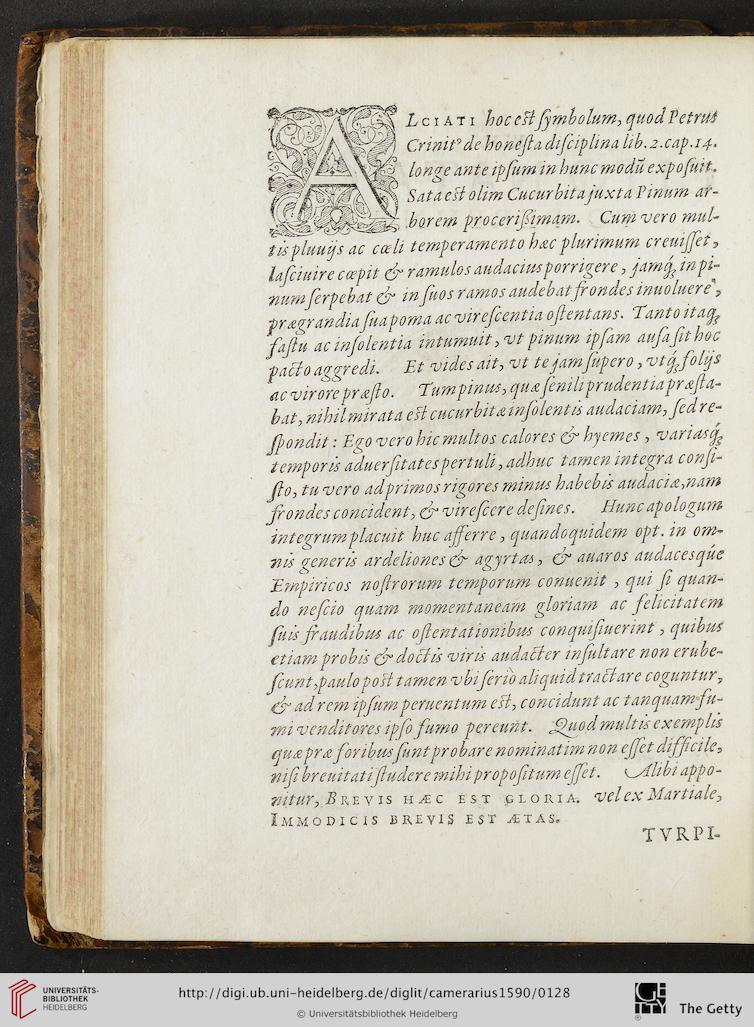 ALCIATI hoc est symbolum, quod Petrus
Crinitꝰ de honesta disciplina lib. 2. cap. 14.
longe ante ipsum in hunc modū exposuit.
Sata est olim Cucurbita juxta Pinum ar-
borem procerißimam. Cum vero mul-
tis pluuijs ac cœli temperamento hæc plurimum creuisset,
lasciuire cœpit & ramulos audacius porrigere, jamq́ꝫ in pi-
num serpebat & in suos ramos audebat frondes inuoluere,
prægrandia sua poma ac virescentia ostentans. Tanto itaqꝫ
fastu ac insolentia intumuit, vt pinum ipsam ausa sit hoc
pacto aggredi. Et vides ait, vt te jam supero, vtq́ꝫ folijs
ac virore præsto. Tum pinus, quæ senili prudentia præsta-
bat, nihil mirata est cucurbitæ insolentis audaciam, sed re-
spondit: Ego vero hic multos calores & hyemes, variasq́ꝫ
temporis aduersitates pertuli, adhuc tamen integra consi-
sto, tu vero ad primos rigores minus habebis audaciæ, nam
frondes concident, & virescere desines. Hunc apologum
integrum placuit huc afferre, quandoquidem opt. in om-
nis generis ardeliones & agyrtas, & auaros audacesque
Empiricos nostrorum temporum conuenit, qui si quan-
do nescio quam momentaneam gloriam ac felicitatem
suis fraudibus ac ostentationibus conquisiuerint, quibus
etiam probis & doctis viris audacter insultare non erube-
scunt, paulo post tamen vbi serio aliquid tractare coguntur,
& ad rem ipsum peruentum est, concidunt ac tanquam fu-
mi venditores ipso fumo pereunt. Quod multis exemplis
quæ præ foribus sunt probare nominatim non esset difficile,
nisi breuitati studere mihi propositum esset. Alibi appo-
nitur, BREVIS HÆC EST GLORIA. vel ex Martiale,
IMMODICIS BREVIS EST ÆTAS.
TVRPI-
UNIVERSITÄTS-
BIBLIOTHEK
HEIDELBERG
http://digi.ub.uni-heidelberg.de/diglit/camerarius1590/0128
© Universitätsbibliothek Heidelberg
The Getty